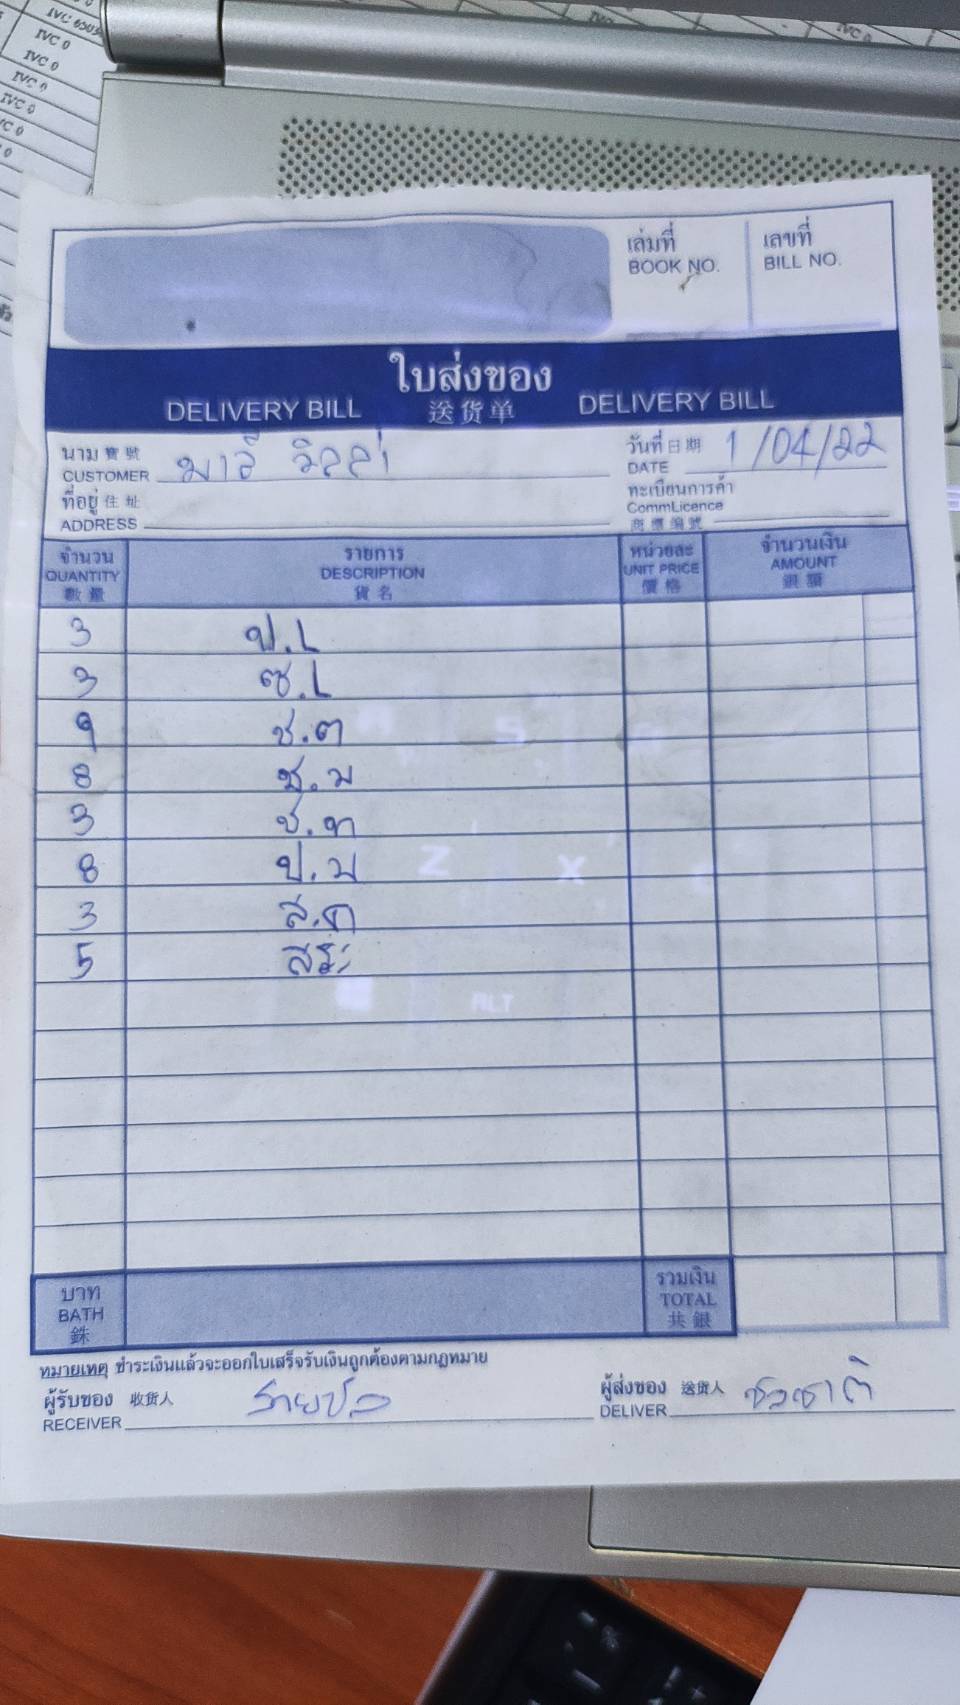 IVC 0
IVC 0
IVC 0
IVC 0
เล่มที่ เลขที่
BOOK NO. BILL NO.
ใบส่งของ
DELIVERY BILL 送货单 DELIVERY BILL
นาม 寶號 วันที่ 日期 1/04/22
CUSTOMER มาลี วิลล่า DATE
ที่อยู่ 住址 ทะเบียนการค้า
CommLicence
ADDRESS 商標編號
จำนวน รายการ หน่วยละ จำนวนเงิน
QUANTITY DESCRIPTION UNIT PRICE AMOUNT
數量 貨名 價格 銀額
3 ป.L
3 ซ.L
9 ช.ต
8 ช.ม
3 ช.ท
8 ป.ม
3 ส.ด
5 สระ
บาท รวมเงิน
BATH TOTAL
銖 共銀
หมายเหตุ ชำระเงินแล้วจะออกใบเสร็จรับเงินถูกต้องตามกฎหมาย
ผู้รับของ 收货人 ผู้ส่งของ 送货人
RECEIVER DELIVER